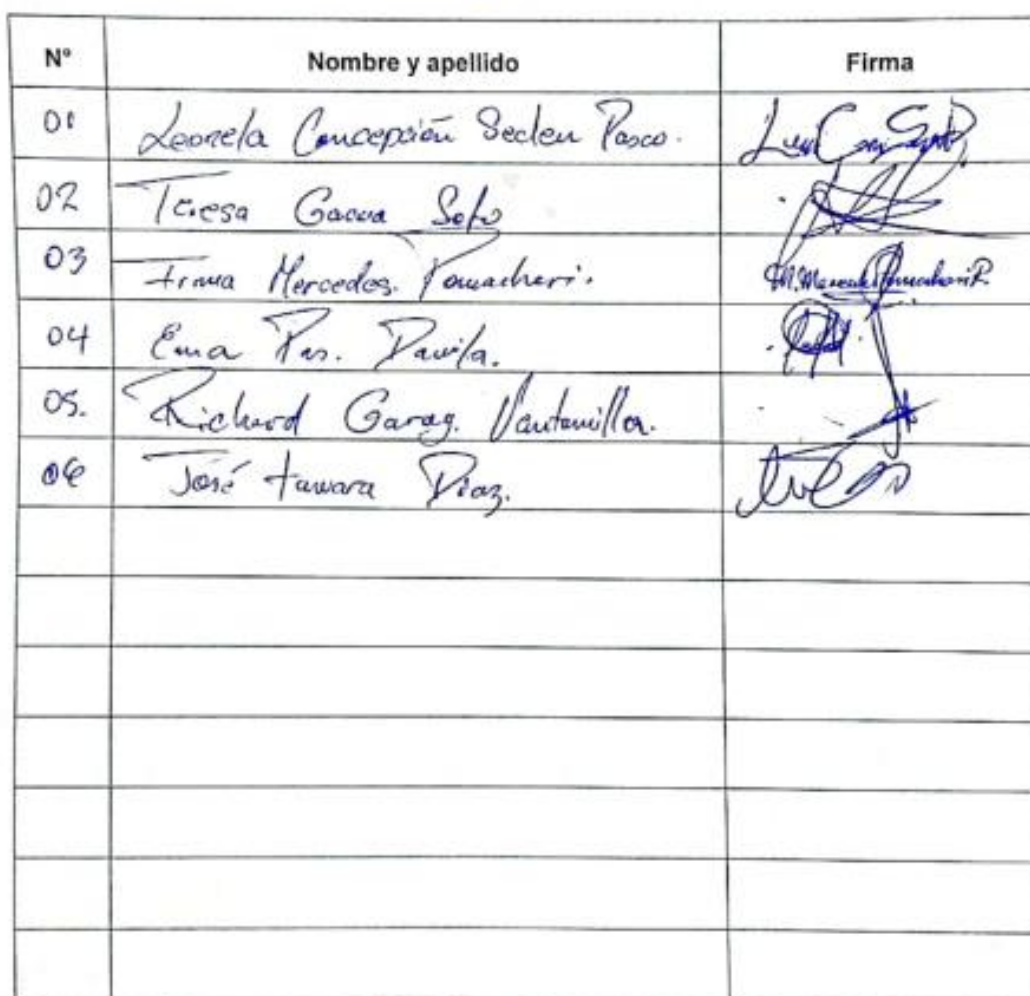 Nº Nombre y apellido Firma
01 Leonela Concepción Seclen Pasco.
02 Teresa Gacua Soto
03 Irma Mercedes. Pomacheri.
04 Ema Davila.
05. Richard Garag. Vantanilla.
06 José tawara Diaz.